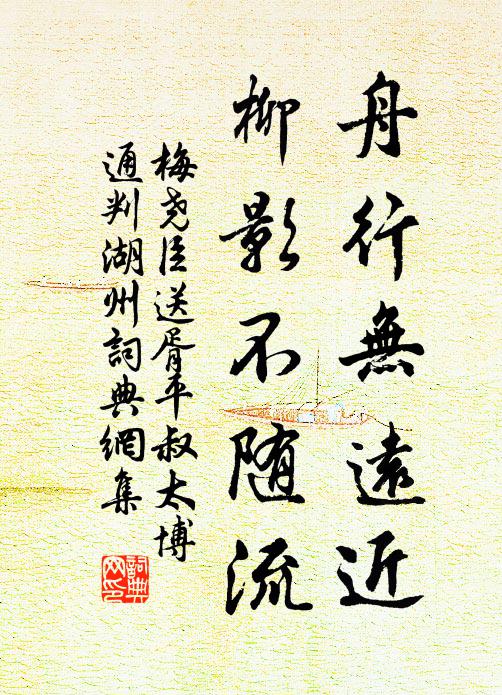 舟行無遠近
柳影不随流
梅尧臣送胥平叔太博
通判湖州詞典網集
詞典网印